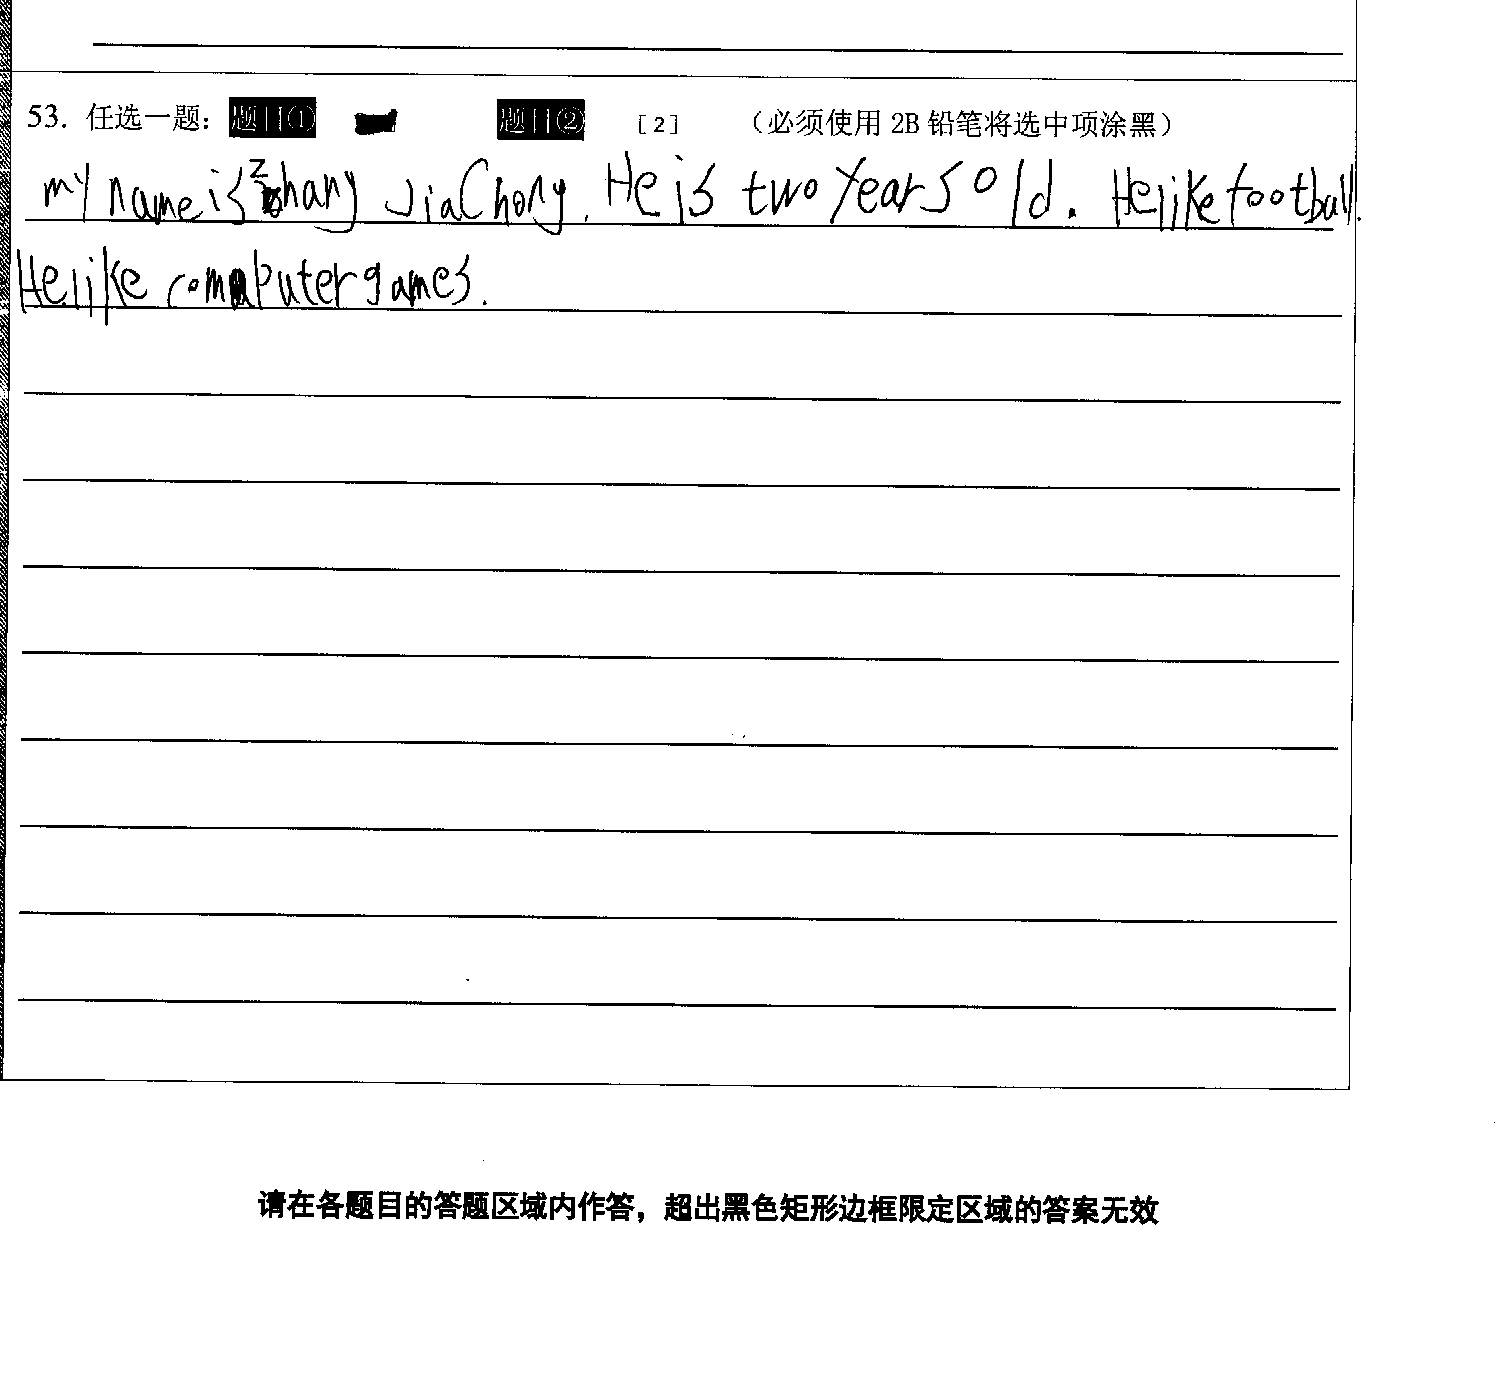 53. 任选一题： 题目① 题目② [2] （必须使用 2B 铅笔将选中项涂黑）
my name is Zhang JiaChong. He is two years old. He like football.
He like computer games.
请在各题目的答题区域内作答，超出黑色矩形边框限定区域的答案无效